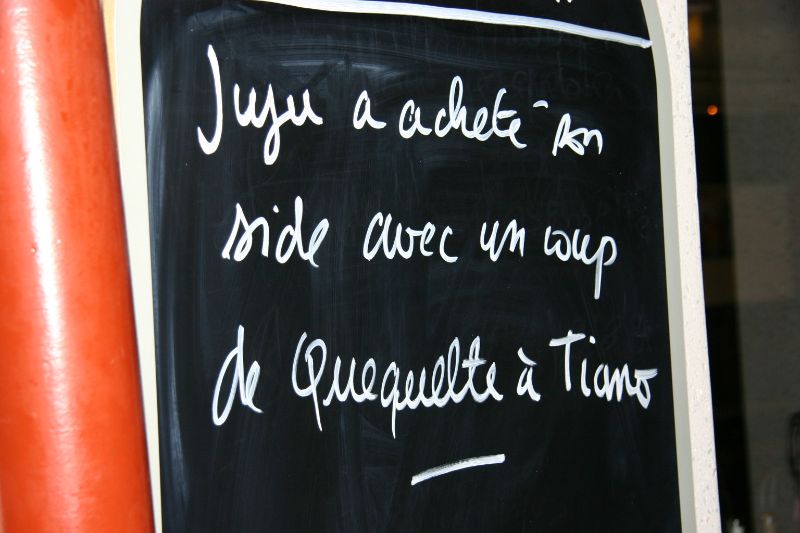 Juju a acheté son
side avec un coup
de Quequette à Tiano